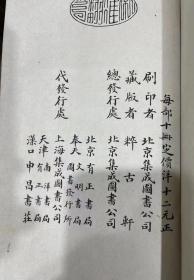 每部十冊定價洋十二元正
刷印者 北京集成圖書公司
藏版者 粹古軒
總發行者 北京集成圖書公司
代發行處
北京有正書局
奉天 文明書局
圖書發行所
上海集成圖書公司
天津 南洋書局
有正書局
漢口申昌書莊